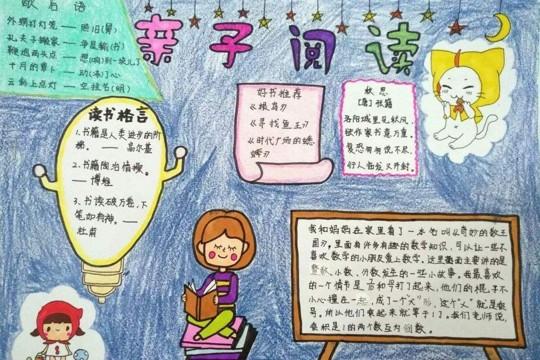 歇后语
外甥打灯笼——照旧(舅)
孔夫子搬家——净是输(书)
鞭炮两头点——想(响)到一块儿了
十月的萝卜——动(冻)了心
云彩上点灯——
亲子阅读
读书格言
1.书籍是人类进步的阶
梯。——高尔基
2.书籍陶冶情操。
——博维
3.书读破万卷,下
笔如有神。——
杜甫
好书推荐
《根鸟》
《寻找鱼王》
《时代广场的蟋
蟀》
秋思
[唐]张籍
洛阳城里见秋风,
欲作家书意万重。
复恐匆匆说不尽,
行人临发又开封。
我和妈妈在家里看了一本书叫《奇妙的数王
国》。里面有许多有趣的数学知识,可以让一些不
喜欢数学的小朋友爱上数学。这里面主要讲的是
整数,小数,分数发生的一些小故事。我最喜欢
的一个情节是 和 打了起来,他们的棍子不
小心撞在一起,成了个"乂"形,这个"乂"就是乘
号。所以他们乘起来就等于1。我们老师说,
乘积是1的两个数互为倒数。